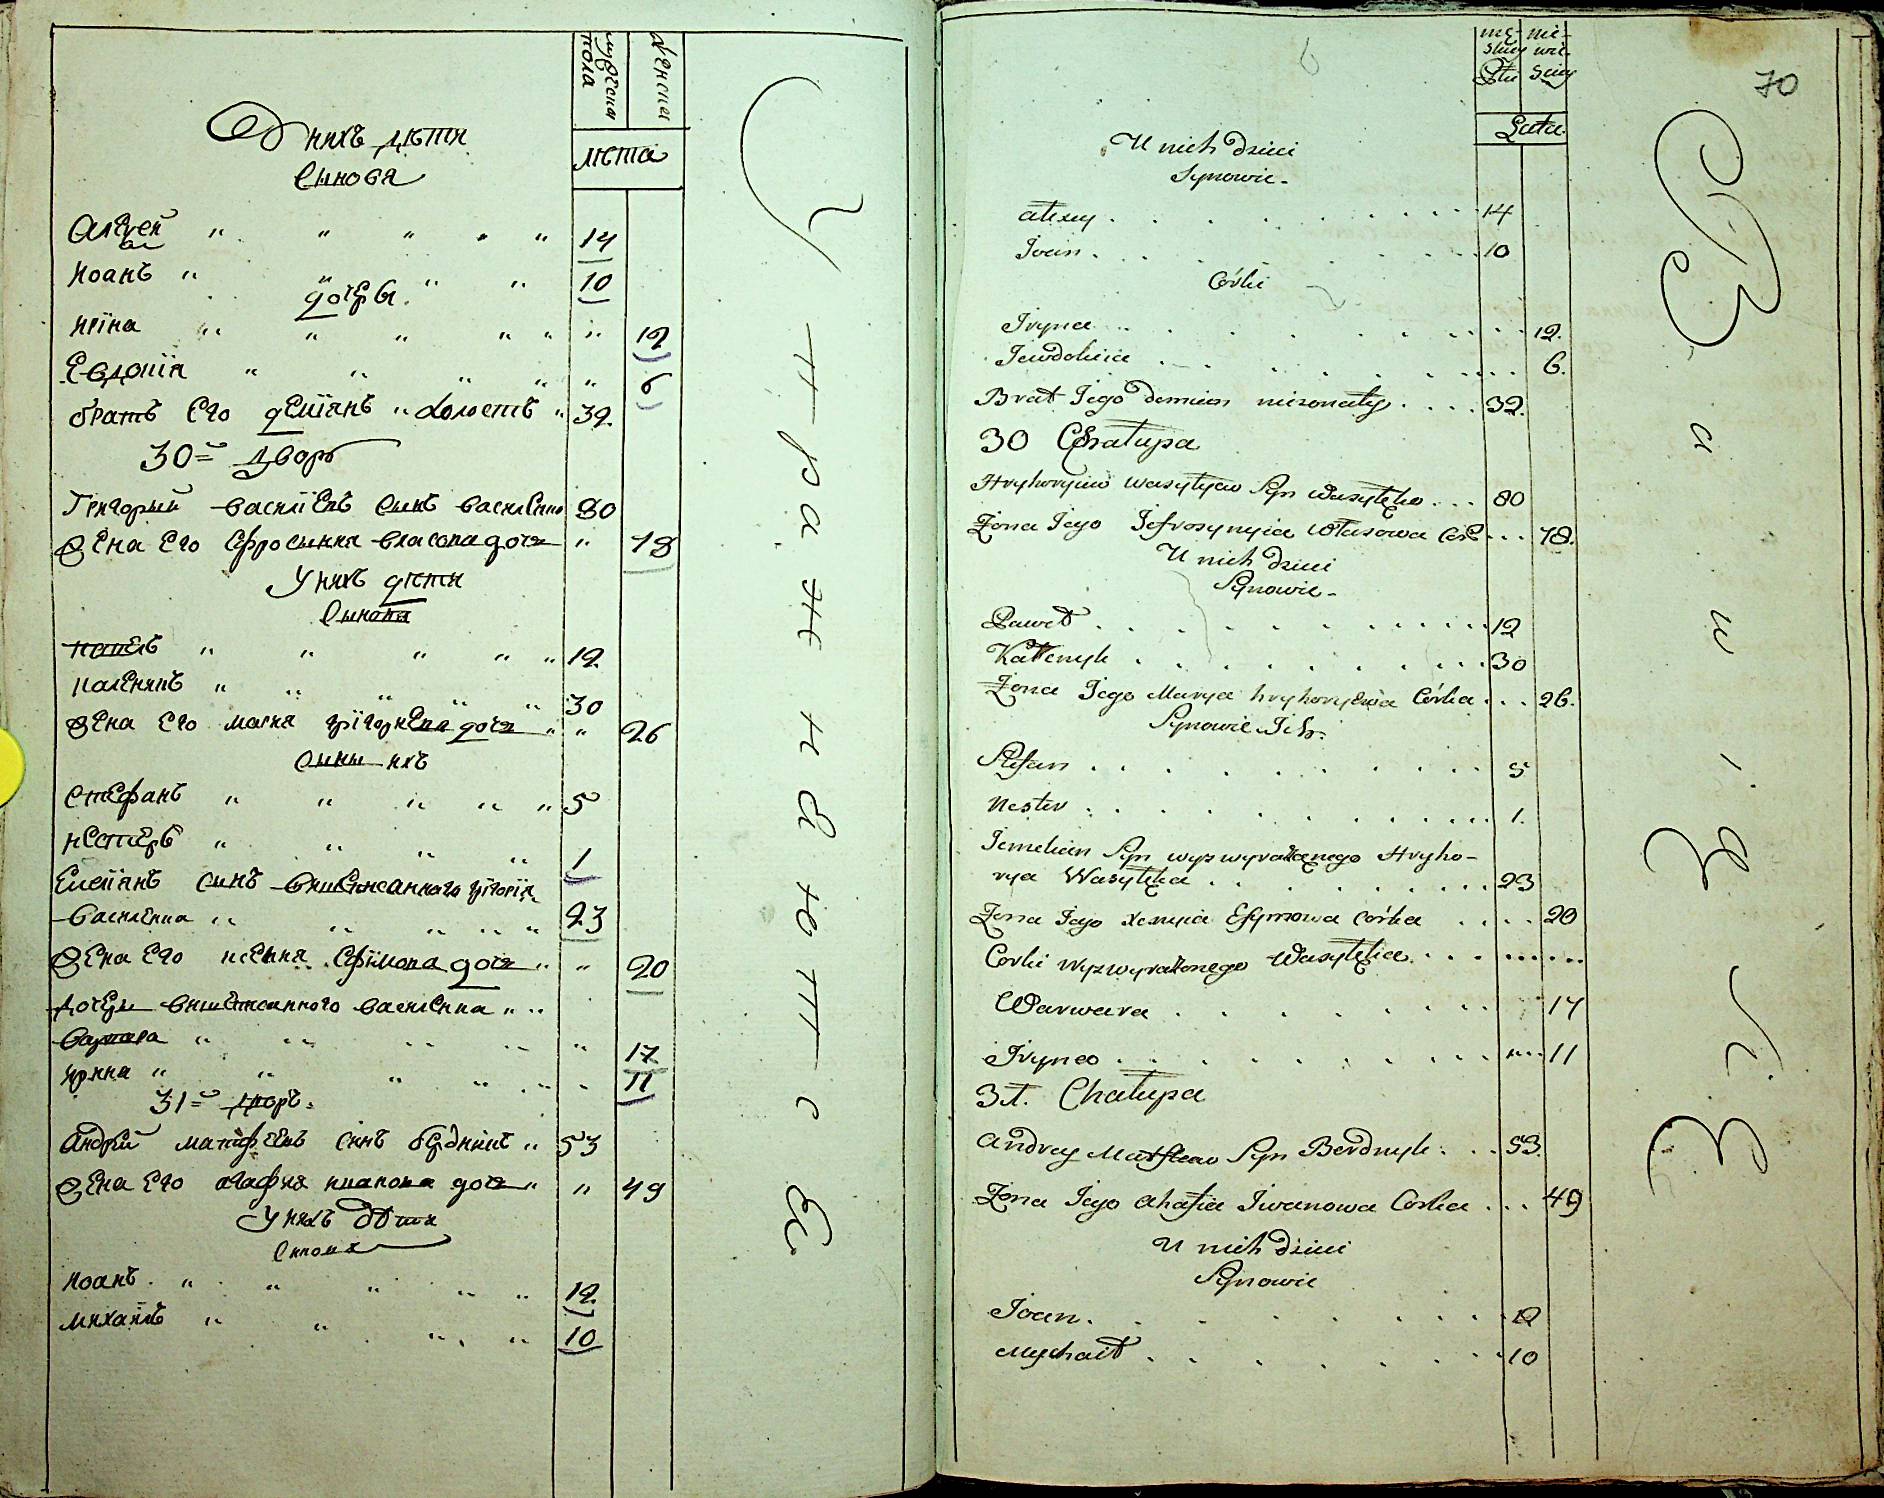 мужеска пола
женска
лѣта
У нихъ дѣти
Сыновя
Алексей 14
Иоанъ 10
дочеры
Ирїна 12
Евдокїя 6
братъ Его демїянъ холостъ 32
30й дворъ
Григорый василїевъ сынъ василенко 80
жена Его Ефросиния власова дочь 78
У нихъ дѣти
Сынови
павелъ 12
каленикъ 30
жена Его мария григориева дочь 26
Сыны ихъ
Стефанъ 5
нестеръ 1
Емелїянъ сынъ вишеписанного григорїя
василенка 23
жена Его ксения Ефимова дочь 20
дочеры вишеписанного василенка
варвара 17
Ирина 11
31й дворъ
Андрѣй матфѣевъ синъ бердникъ 53
жена Его агафия иванова дочь 49
У нихъ дѣти
Синовя
Иоанъ 12
михаилъ 10
У п р а ж н е н ї е
70
męskiey płci
niewiesciey
Lata
U nich dzieci
Synowie
Alexey 14
Joan 10
Córki
Iryna 12
Jewdokija 6
Brat Jego demian nieżonaty 32
30 Chałupa
Hryhoryiw wasylyew Syn wasyłeko 80
Żona Jego Jefrosynyia Własowa Cór. 78
U nich dzieci
Synowie
Paweł 12
Kałenyk 30
Żona Jego Marya hryhoryewa Córka 26
Synowie Ich
Stefan 5
Nester 1
Jemelian Syn wyzwyrażonego Hryho-
rya Wasyłeka 23
Żona Jego Xenyia Efymowa Córka 20
Corki wyzwyrażonego Wasyłka
Warwara 17
Iryna 11
31. Chałupa
Andrey Matfeew Syn Berdnyk 53
Żona Jego Ahafia Iwanowa Corka 49
U nich dzieci
Synowie
Joan 12
Mychaił 10